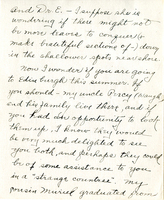 and Dr. E— I suppose she is
wondering if there might not
be more leaves to conquer (or
make beautiful sections of—) down
in the shallower spots near shore.
Now I wonder if you are going
to Edinburgh this summer. If
you should—my uncle Percy
and his family live there, and if
you had an opportunity to look
them up. I know they would
be very much delighted to see
you both, and perhaps they could
be of some assistance to you
in a "strange countree". My
cousin Muriel graduated from